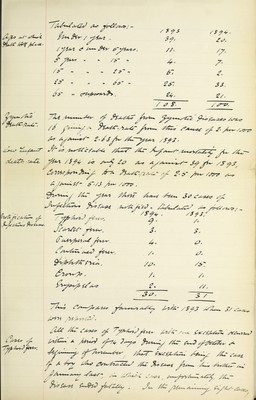 Tabulated as follows:-
Ages at which Death took place
1893 1894.
Under 1 year. 39. 20.
1 year & under 5 years. 11. 17.
5 years - 15 - 4. 7.
15 - - 25 - 6. 2.
25 - - 65 - 25. 33.
65 - onwards. 24. 21.
108. 100.
Zymotic Death rate.
The number of deaths from Zymotic diseases was
16 giving a death rate from this cause of 2 per 1000
as against 2.63 for the year 1893.
Low Infant death rate
It is noticeable that the Infant mortality for the
year 1894 is only 20 as against 39 for 1893,
corresponding to a death rate of 2.5 per 1000 as
against 5.13 per 1000.
During the year there have been 30 cases of
Notification of Infectious Disease
Infectious Disease notified - tabulated as follows:-
1894. 1893.
Typhoid fever. 9.
Scarlet fever. 3. 3.
Puerperal fever 4. 0.
Continued fever 1. 0.
Diphtheria. 10.
Croup. 1. 1.
Erysipelas 2. 11.
30. 31
This compares favourably with 1893 when 31 cases
were reported.
Cases of Typhoid fever
All the cases of Typhoid fever with one exception occurred
within a period of days during the end of October &
beginning of November that exception being the case
of a boy who contracted the disease from his brother in
January last. In this case, unfortunately the
disease ended fatally. In the remaining eight cases